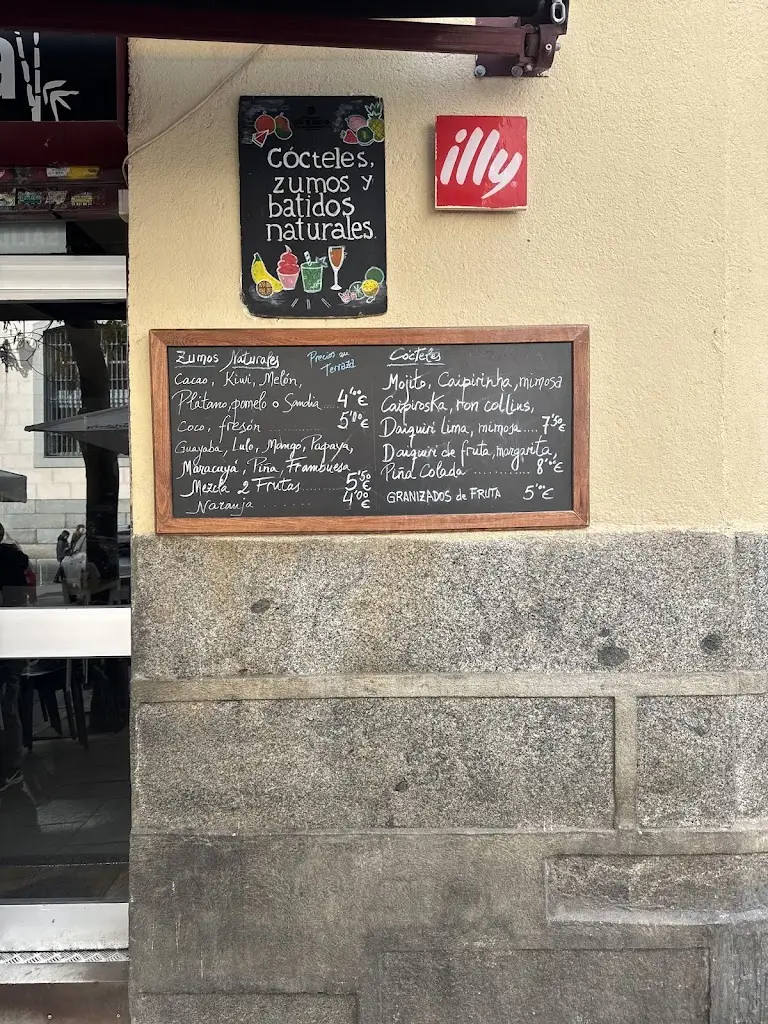 a
Cócteles,
zumos y
batidos
naturales.
illy
Zumos Naturales
Precios en
Terraza
Cacao, Kiwi, Melón,
Plátano, pomelo o Sandia.... 4'00 €
Coco, fresón ............ 5'00 €
Guayaba, Lulo, Mango, Papaya,
Maracuyá, Piña, Frambuesa
Mezcla 2 Frutas............ 5'50 €
Naranja ............ 4'00 €
Cócteles
Mojito, Caipirinha, mimosa
Caipiroska, ron collins,
Daiquiri lima, mimosa.... 7'50 €
Daiquiri de fruta, margarita,
Piña Colada ............ 8'00 €
GRANIZADOS de FRUTA 5'00 €